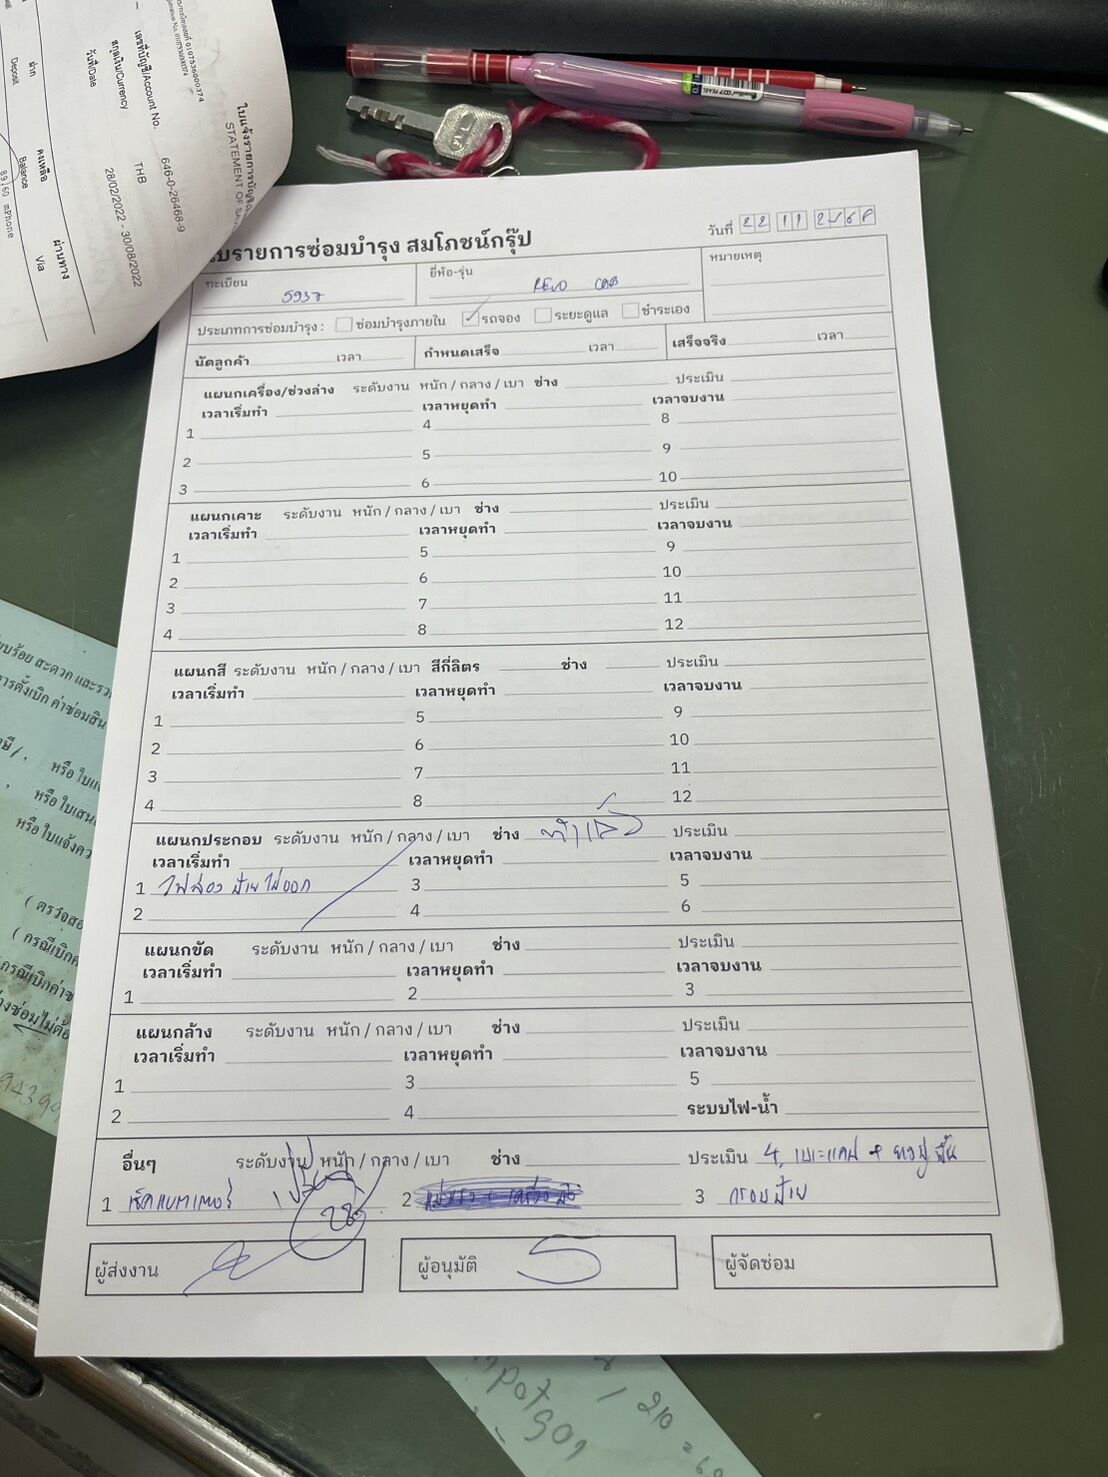 ใบแจ้งรายการบัญชี
STATEMENT OF
เลขที่บัญชี/Account No. 646-0-26468-9
สกุลเงิน/Currency THB
วันที่/Date 28/02/2022 - 30/08/2022
ฝาก คงเหลือ ผ่านทาง
Deposit Balance Via
mPhone
บรายการซ่อมบำรุง สมโภชน์กรุ๊ป
วันที่ 22 11 256
ทะเบียน 5937
ยี่ห้อ-รุ่น REVO CAB
หมายเหตุ
ประเภทการซ่อมบำรุง : ซ่อมบำรุงภายใน รถจอง ระยะดูแล ชำระเอง
นัดลูกค้า เวลา กำหนดเสร็จ เวลา เสร็จจริง เวลา
แผนกเครื่อง/ช่วงล่าง ระดับงาน หนัก / กลาง / เบา ช่าง ประเมิน
เวลาเริ่มทำ เวลาหยุดทำ เวลาจบงาน
1 4 8
2 5 9
3 6 10
แผนกเคาะ ระดับงาน หนัก / กลาง / เบา ช่าง ประเมิน
เวลาเริ่มทำ เวลาหยุดทำ เวลาจบงาน
1 5 9
2 6 10
3 7 11
4 8 12
แผนกสี ระดับงาน หนัก / กลาง / เบา สีกี่ลิตร ช่าง ประเมิน
เวลาเริ่มทำ เวลาหยุดทำ เวลาจบงาน
1 5 9
2 6 10
3 7 11
4 8 12
แผนกประกอบ ระดับงาน หนัก / กลาง / เบา ช่าง ทำแล้ว ประเมิน
เวลาเริ่มทำ เวลาหยุดทำ เวลาจบงาน
1 ไฟส่องป้ายไม่ออก 3 5
2 4 6
แผนกขัด ระดับงาน หนัก / กลาง / เบา ช่าง ประเมิน
เวลาเริ่มทำ เวลาหยุดทำ เวลาจบงาน
1 2 3
แผนกล้าง ระดับงาน หนัก / กลาง / เบา ช่าง ประเมิน
เวลาเริ่มทำ เวลาหยุดทำ เวลาจบงาน
1 3 5
2 4 ระบบไฟ-น้ำ
อื่นๆ ระดับงาน หนัก / กลาง / เบา ช่าง ประเมิน 4. เบาะแคป +
1 เช็คแบตเตอรี่ 2 3 กรอบป้าย
ผู้ส่งงาน ผู้อนุมัติ ผู้จัดซ่อม